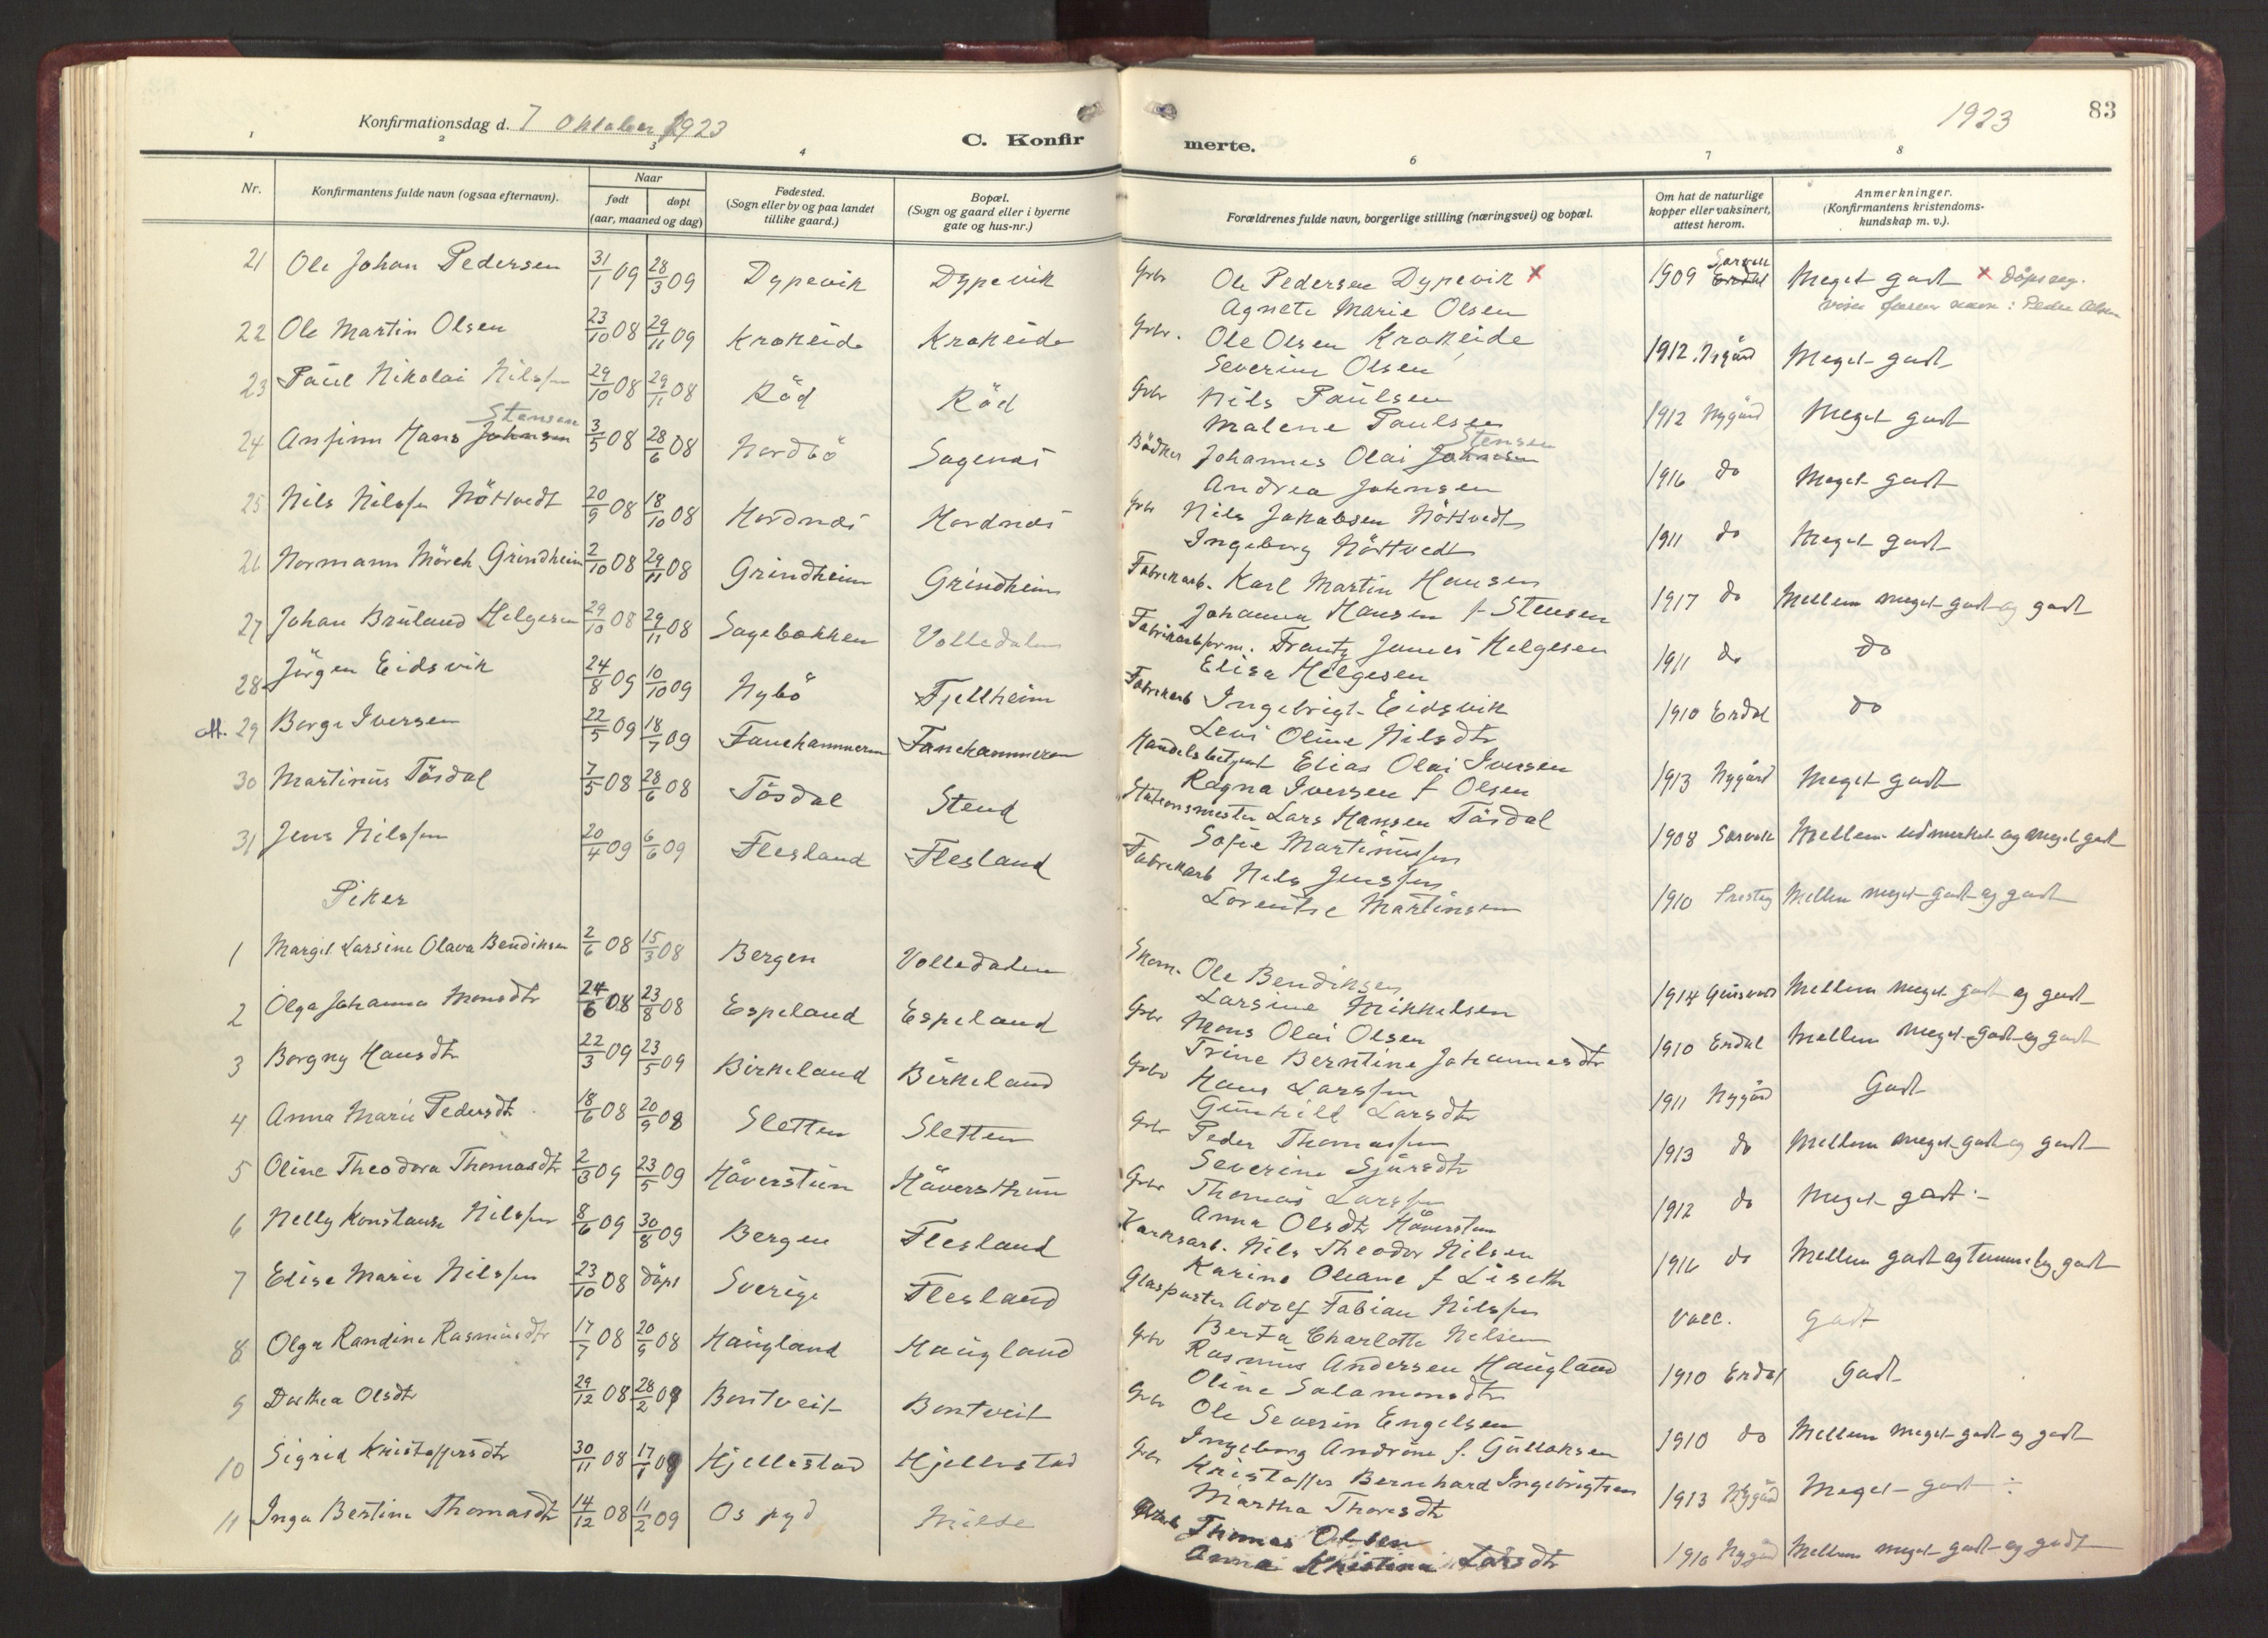 Konfirmationsdag d. 7 Oktober 1923
C. Konfirmerte.
1923
83
1 2 3 4 6 7 8
Nr. Konfirmantens fulde navn (ogsaa efternavn). Naar født døpt (aar, maaned og dag) Fødested. (Sogn eller by og paa landet tillike gaard.) Bopæl. (Sogn og gaard eller i byerne gate og hus-nr.) Forældrenes fulde navn, borgerlige stilling (næringsvei) og bopæl. Om hat de naturlige kopper eller vaksinert, attest herom. Anmerkninger. (Konfirmantens kristendoms-kundskap m. v.).
21 Ole Johan Pedersen 31/1 09 28/3 09 Dypevik Dypevik Grbr Ole Pedersen Dypevik x 1909 Meget godt x Döpsreg.
Agnete Marie Olsen viser farens navn: Peder Olsen
22 Ole Martin Olsen 23/10 08 29/11 09 Krokeide Krokeide Grbr. Ole Olsen Krokeide 1912 Nygård Meget godt
Severine Olsen
23 Paul Nikolai Nilssen 29/10 08 29/11 08 Röd Röd Grbr Nils Paulsen 1912 Nygård Meget godt
Malene Paulsen
24 Anfinn Hans Johnsen Stensen 3/5 08 28/6 08 Nordbö Sagenes Bödker Johannes Olai Johnsen Stensen 1916 do Meget godt
Andrea Johnsen
25 Nils Nilssen Nöttvedt 20/9 08 18/10 08 Hordnes Hordnes Grbr Nils Jakobsen Nöttvedt 1911 do Meget godt
Ingeborg Nöttvedt
26 Normann Mörch Grindheim 2/10 08 29/11 08 Grindheim Grindheim Fabrikarb. Karl Martin Hansen 1917 do Mellem meget godt og godt
Johanna Hansen f Stensen
27 Johan Bruland Helgesen 29/10 08 29/11 08 Sagebakken Volledalen Fabrikarbform. Frantz James Helgesen 1911 do do
Elisa Helgesen
28 Jörgen Eidsvik 24/8 09 10/10 09 Nybö Fjellheim Fabrikarb Ingebrigt Eidsvik 1910 Erdal do
Levi Oline Nilsdtr
att. 29 Borge Iversen 22/5 09 18/7 09 Fanehammeren Fanehammeren Handelsbetjent Elias Olai Iversen 1913 Nygård Meget godt
Ragna Iversen f Olsen
30 Martinus Tösdal 7/5 08 28/6 08 Tösdal Stend Stationsmester Lars Hansen Tösdal 1908 Sörvik Mellem udmerket og meget godt
Sofie Martinussen
31 Jens Nilssen 20/4 09 6/6 09 Flesland Flesland Fabrikarb Nils Jenssen 1910 Mellem meget godt og godt
Lorentse Martinsen
Piker
1 Margit Larsine Olava Bendiksen 2/6 08 15/3 08 Bergen Volledalen Skom. Ole Bendiksen 1914 Mellem meget godt og godt
Larsine Mikkelsen
2 Olga Johanna Monsdtr 24/6 08 23/8 08 Espeland Espeland Grbr Mons Olai Olsen 1910 Erdal Mellem meget godt og godt
Trine Berntine Johannesdtr
3 Borgny Hansdtr 22/3 09 23/5 09 Birkeland Birkeland Grbr Hans Larssen 1911 Nygård Godt
Gunhild Larsdtr
4 Anna Marie Pedersdtr 18/6 08 20/9 08 Sletten Sletten Grbr Peder Thomassen 1913 do Mellem meget godt og godt
Severine Sjursdtr
5 Oline Theodora Thomasdtr 2/3 09 23/5 09 Håverstun Håverstun Grbr Thomas Larssen 1912 do Meget godt
Anna Olsdtr Håverstun
6 Nelly Konstanse Nilssen 8/6 09 30/8 09 Bergen Flesland Nils Theodor Nilsen 1916 do Mellem godt og temmelig godt
Karine Oleane f Liseth
7 Elise Marie Nilssen 23/10 08 döpt Sverige Flesland Glaspuster Adolf Fabian Nilssen Vacc. Godt
Berta Charlotte Nilsen
8 Olga Randine Rasmusdtr 17/7 08 20/9 08 Haugland Haugland Grbr Rasmus Andersen Haugland 1910 Erdal Godt
Oline Salamonsdtr
9 Dorthea Olsdtr 29/12 08 28/2 09 Bontveit Bontveit Grbr Ole Severin Engelsen 1910 do Mellem meget godt og godt
Ingeborg Andrine f. Gullaksen
10 Sigrid Kristoffersdtr 30/11 08 17/1 09 Hjellestad Hjellestad Grbr Kristoffer Bernhard Ingebrigtsen 1913 Nygård Meget godt
Martha Thoresdtr
11 Inga Bertine Thomasdtr 14/12 08 11/2 09 Os pgd Milde Thomas Olsen 1910 Nygård Mellem meget godt og godt
Anna Kristina Larsdtr